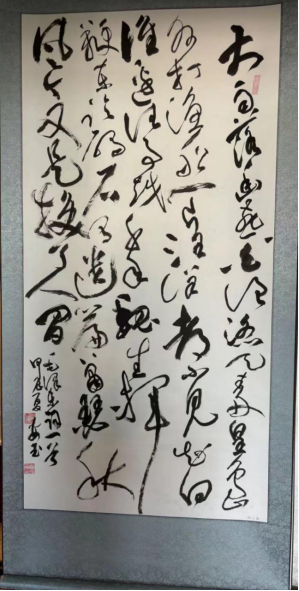 大雨落幽燕白浪滔天秦皇岛
外打渔船一片汪洋都不见知向
谁边往事越千年魏武挥
鞭东临碣石有遗篇萧瑟秋
风今又是换了人间
毛泽东词一首
夏